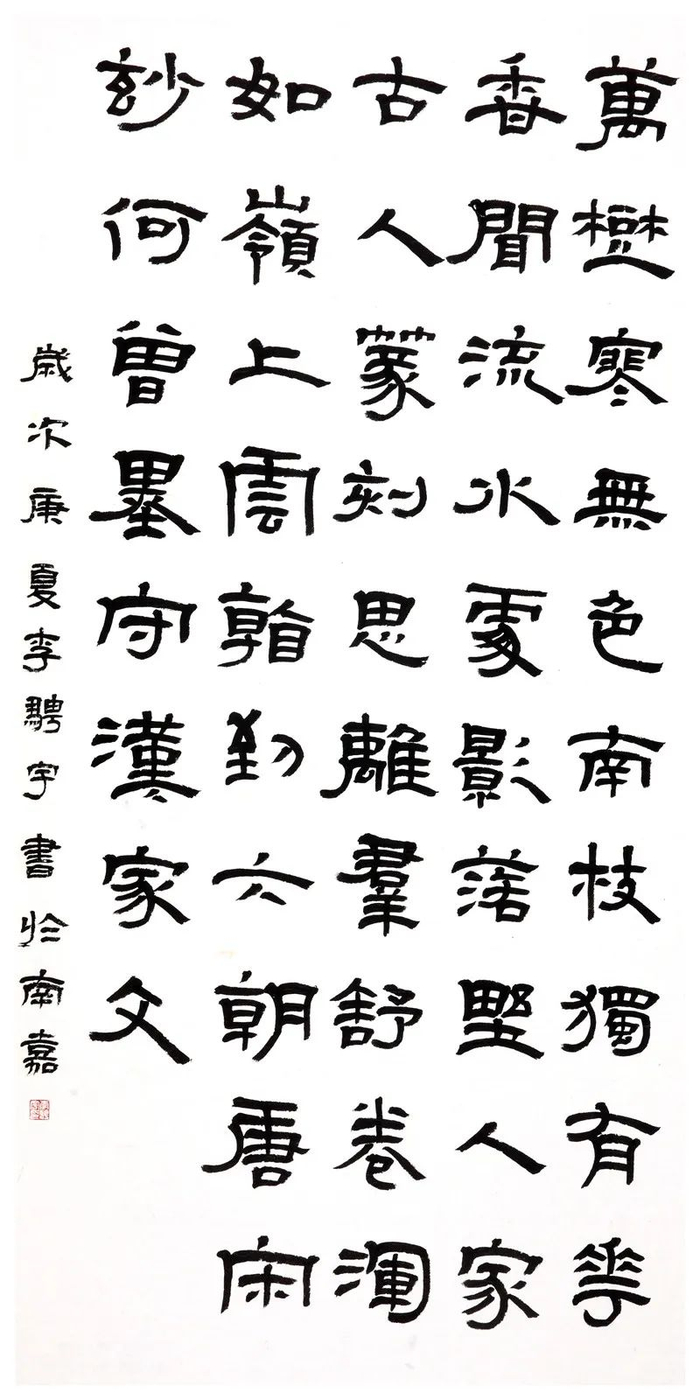 萬寒無色南枝獨有華
香聞流水處影落野人家
古人篆刻思離羣舒卷渾
如嶺上雲看到六朝唐宋
玅何曾墨守漢家文
歲次庚夏李騁宇書於南嘉